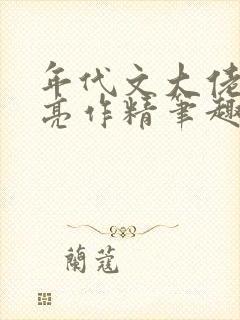 年代文大佬
亮作精笔趣
蘭蔻